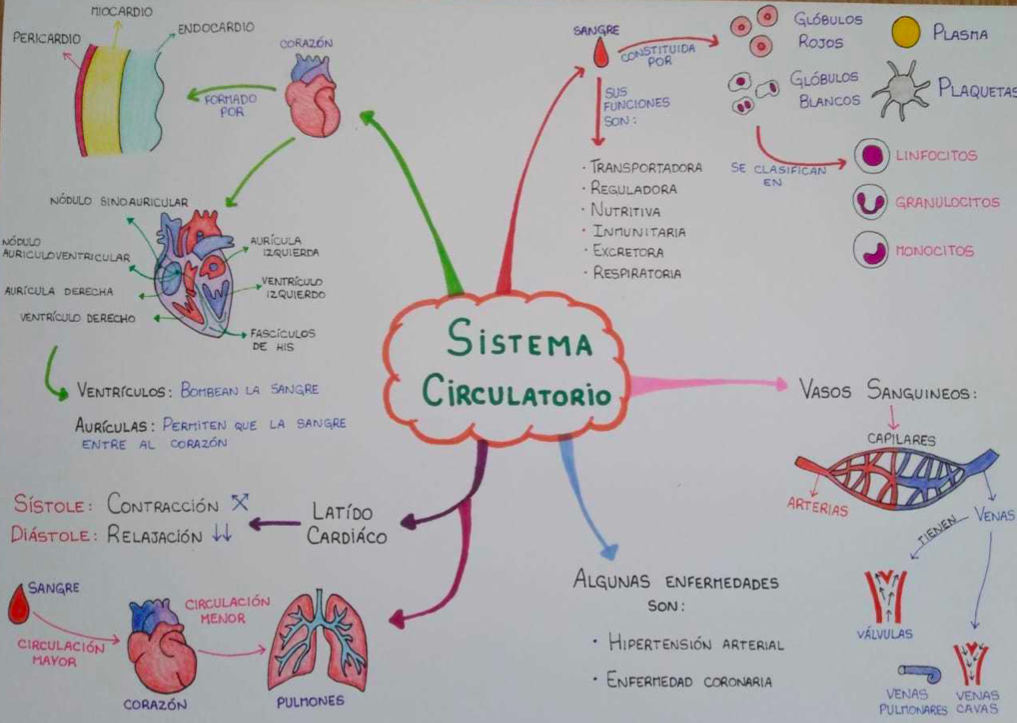 MIOCARDIO
PERICARDIO
ENDOCARDIO
CORAZÓN
FORMADO
POR
NÓDULO SINOAURICULAR
NÓDULO
AURICULOVENTRICULAR
AURÍCULA DERECHA
VENTRÍCULO DERECHO
AURÍCULA
IZQUIERDA
VENTRÍCULO
IZQUIERDO
FASCÍCULOS
DE HIS
VENTRÍCULOS: BOMBEAN LA SANGRE
AURÍCULAS: PERMITEN QUE LA SANGRE
ENTRE AL CORAZÓN
SANGRE
CONSTITUIDA
POR
GLÓBULOS
ROJOS
PLASMA
GLÓBULOS
BLANCOS
PLAQUETAS
SUS
FUNCIONES
SON:
· TRANSPORTADORA
· REGULADORA
· NUTRITIVA
· INMUNITARIA
· EXCRETORA
· RESPIRATORIA
SE CLASIFICAN
EN
LINFOCITOS
GRANULOCITOS
MONOCITOS
SISTEMA
CIRCULATORIO
VASOS SANGUINEOS:
CAPILARES
ARTERIAS
VENAS
TIENEN
VÁLVULAS
VENAS
PULMONARES
VENAS
CAVAS
LATÍDO
CARDIÁCO
SÍSTOLE: CONTRACCIÓN
DIÁSTOLE: RELAJACIÓN ↓↓
SANGRE
CIRCULACIÓN
MAYOR
CORAZÓN
CIRCULACIÓN
MENOR
PULMONES
ALGUNAS ENFERMEDADES
SON:
· HIPERTENSIÓN ARTERIAL
· ENFERMEDAD CORONARIA